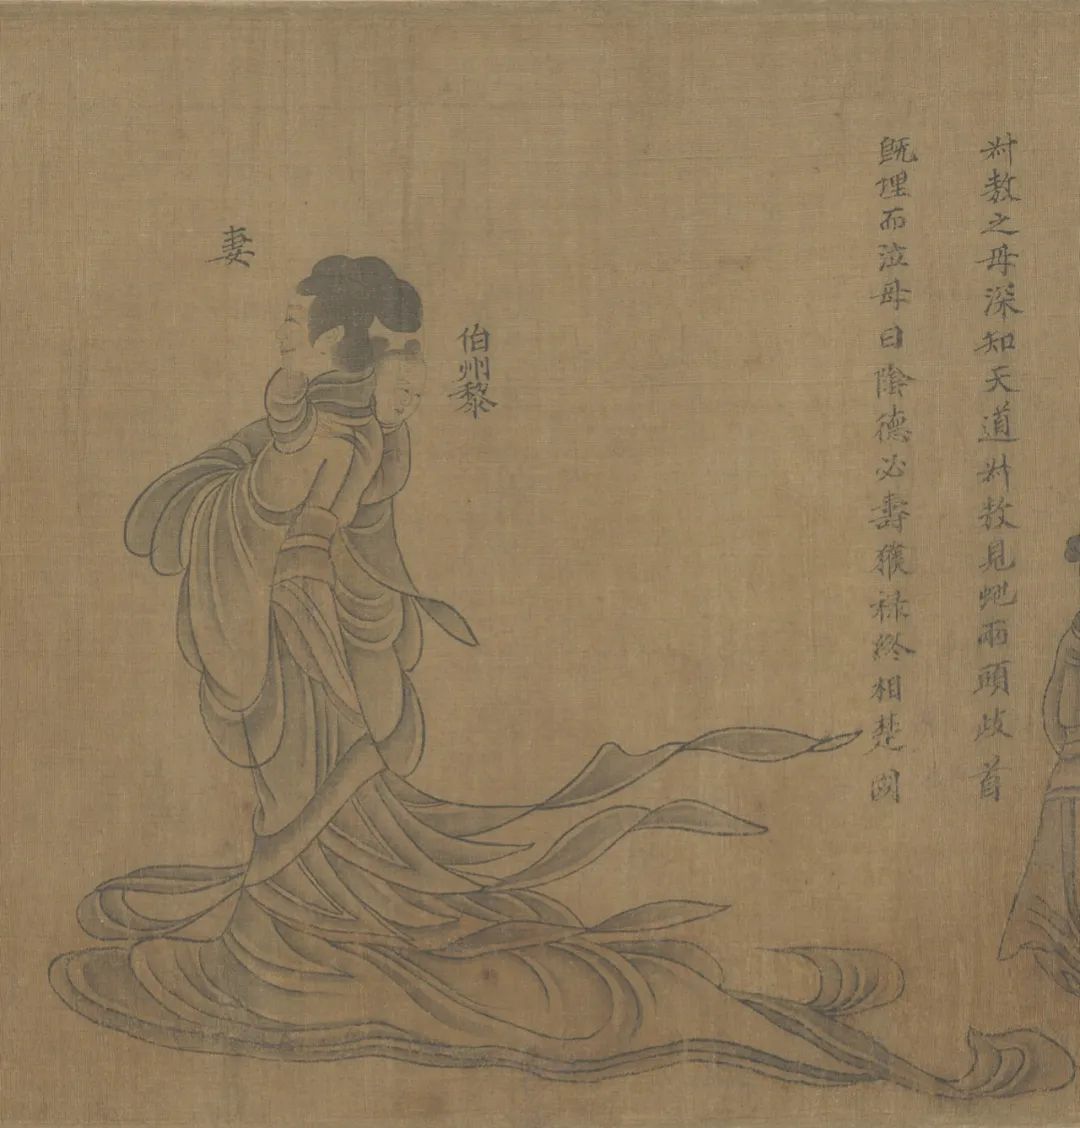 叔敖之母深知天道叔敖見虵兩頭歧首
既埋而泣母曰陰德必壽獲祿終相楚國
伯州黎
妻